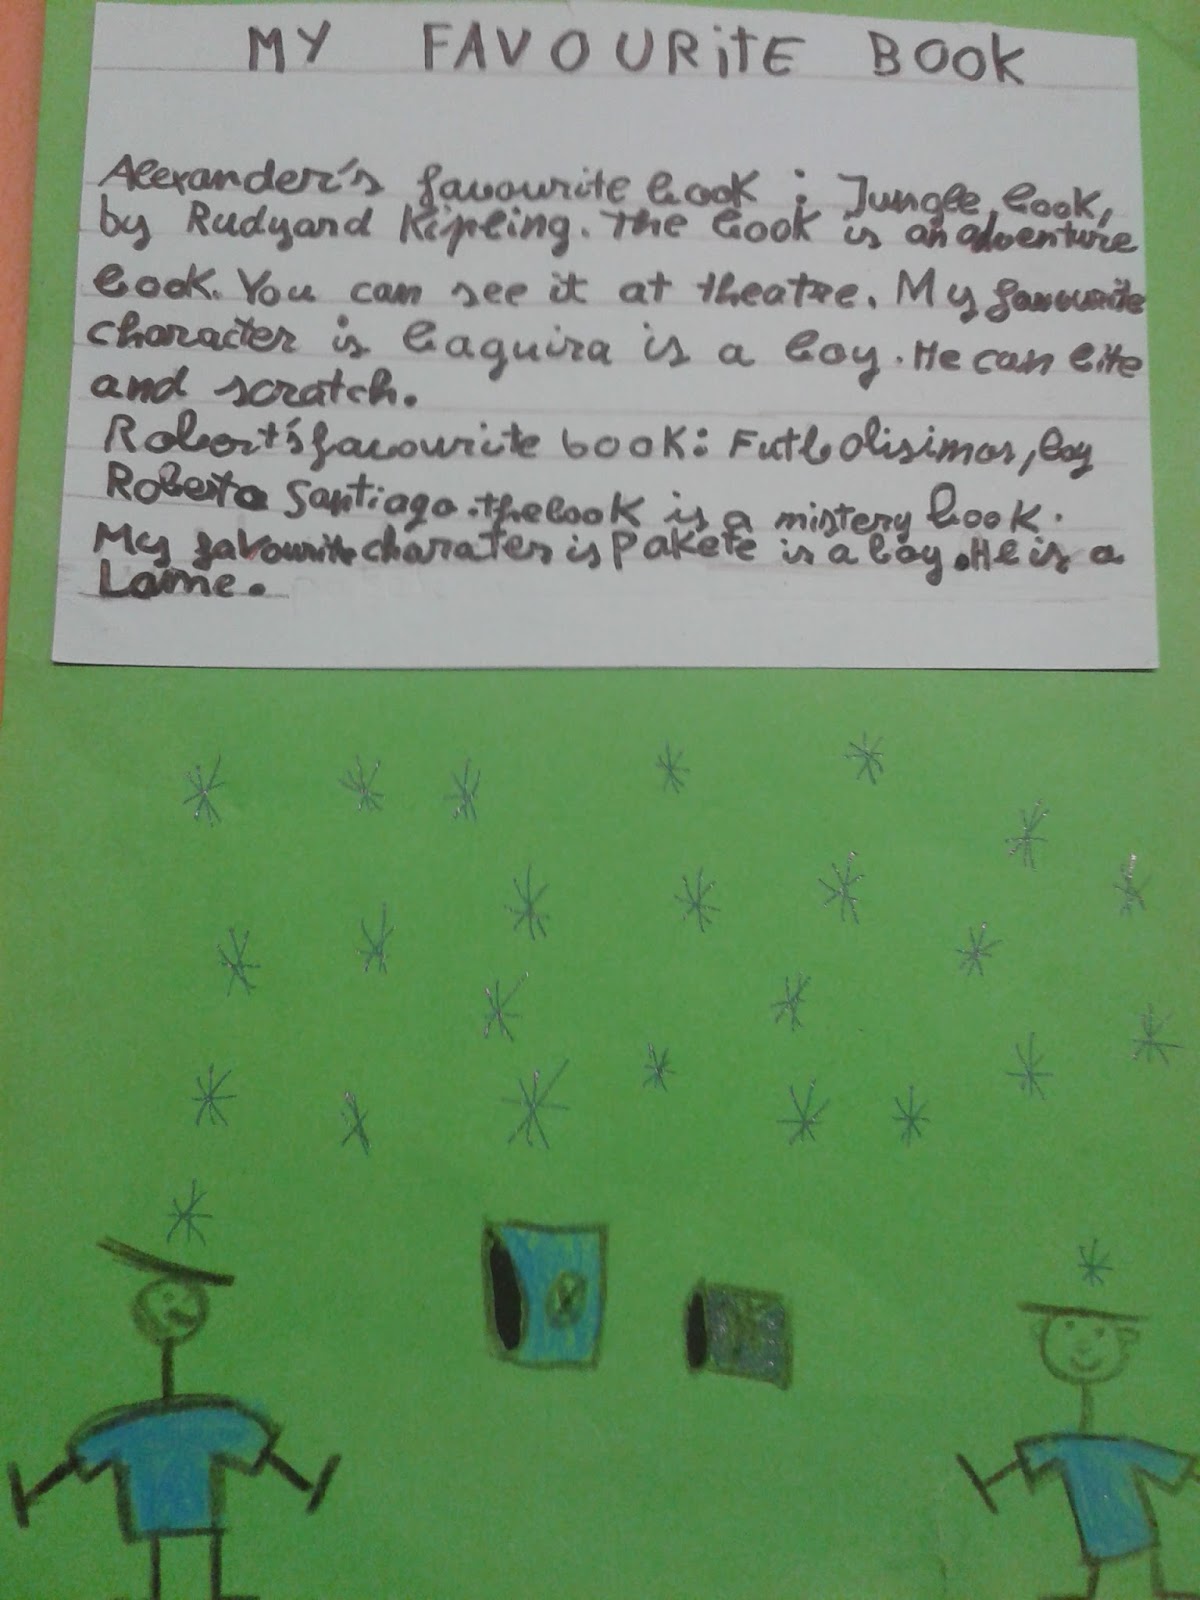 MY FAVOURiTE BOOK
Alexander's favourite book: Jungle book,
by Rudyard Kipling. The book is an adventure
book. You can see it at theatre. My favourite
character is baguira is a boy. He can bite
and scratch.
Robert's favourite book: Futbolisimos, boy
Roberto Santiago. the book is a mistery book.
My favourite charater is Pakete is a boy. He is a
Lame.